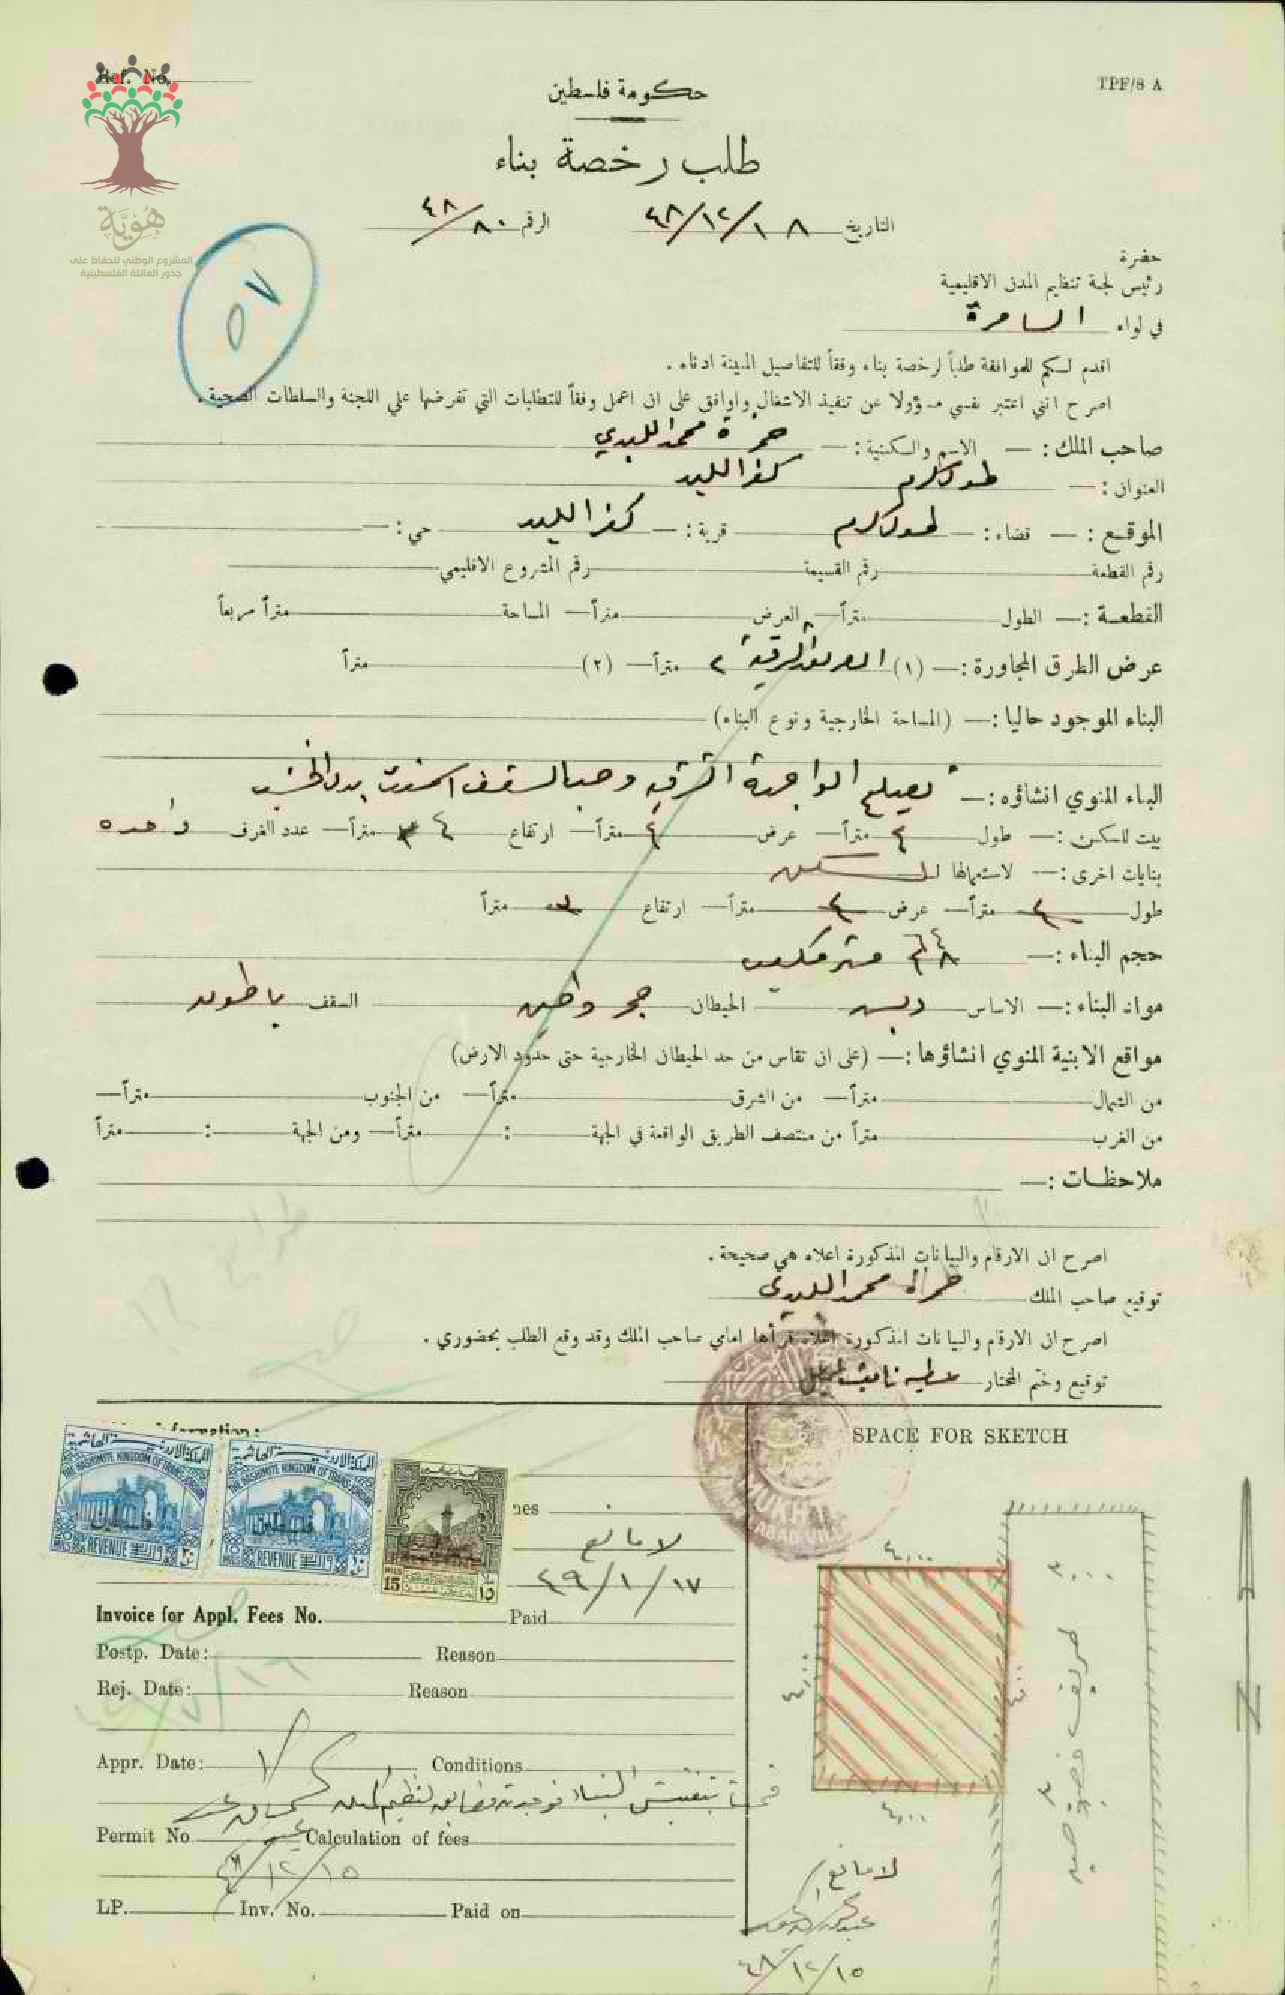 Ref. No.
TPF/8 A
هُوِيَّة
المشروع الوطني للحفاظ على
جذور العائلة الفلسطينية
حكومة فلسطين
طلب رخصة بناء
التاريخ ١٨/١٢/٤٨ الرقم ٨٠/٤٨
٥٧
حضرة
رئيس لجنة تنظيم المدن الاقليمية
في لواء السامرة
اقدم لكم للموافقة طلباً لرخصة بناء وفقاً للتفاصيل المبينة ادناه .
اصرح انني اعتبر نفسي مسؤولا عن تنفيذ الاشغال واوافق على ان اعمل وفقاً للمتطلبات التي تفرضها علي اللجنة والسلطات الصحية .
صاحب الملك : — الاسم والكنية : — حمزة محمد اللبدي
العنوان : — طولكرم كفر اللبد
الموقع : — قضاء : — طولكرم قرية : — كفر اللبد حي : —
رقم القطعة رقم القسيمة رقم المشروع الاقليمي
القطعة : — الطول متراً — العرض متراً — المساحة متراً مربعاً
عرض الطرق المجاورة : — (١) الشرقية ٣ متراً — (٢) متراً
البناء الموجود حاليا : — (المساحة الخارجية ونوع البناء)
البناء المنوي انشاؤه : — تصليح الواجهة الشرقية وصب السقف اسمنت بدل الخشب
بيت للسكن : — طول ٤ متراً — عرض ٤ متراً — ارتفاع ٤ متراً — عدد الغرف واحده
بنايات اخرى : — لاستعمالها السكن
طول ٤ متراً — عرض ٤ متراً — ارتفاع ٣ متراً
حجم البناء : — متر مكعب
مواد البناء : — الاساس دبش الحيطان حجر وطين السقف باطون
مواقع الابنية المنوي انشاؤها : — (على ان تقاس من حد الحيطان الخارجية حتى حدود الارض)
من الشمال متراً — من الشرق متراً — من الجنوب متراً —
من الغرب متراً من منتصف الطريق الواقعة في الجهة : متراً — ومن الجهة : متراً
ملاحظات : —
اصرح ان الارقام والبيانات المذكورة اعلاه هي صحيحة .
توقيع صاحب الملك حمزة محمد اللبدي
اصرح ان الارقام والبيانات المذكورة اعلاه قرأها امامي صاحب الملك وقد وقع الطلب بحضوري .
توقيع وختم المختار عطيه
MUKHTAR
SPACE FOR SKETCH
المملكة الاردنية الهاشمية
THE HASHEMITE KINGDOM OF TRANS-JORDAN
فلسطين
REVENUE
المملكة الاردنية الهاشمية
THE HASHEMITE KINGDOM OF TRANS-JORDAN
فلسطين
REVENUE
MILS 15
١٥
لا مانع
١٧/١/٤٩
Invoice for Appl. Fees No. Paid
Postp. Date: Reason
Rej. Date: Reason
Appr. Date: Conditions
قمت بتفتيش البناء فوجدته
Permit No Calculation of fees
١٥/١٢/٤٨
LP. Inv. No. Paid on
٤,٠٠
٤,٠٠
٤,٠٠
٤,٠٠
٣,٠٠
طريق
N
لا مانع
١٥/١٢/٤٨